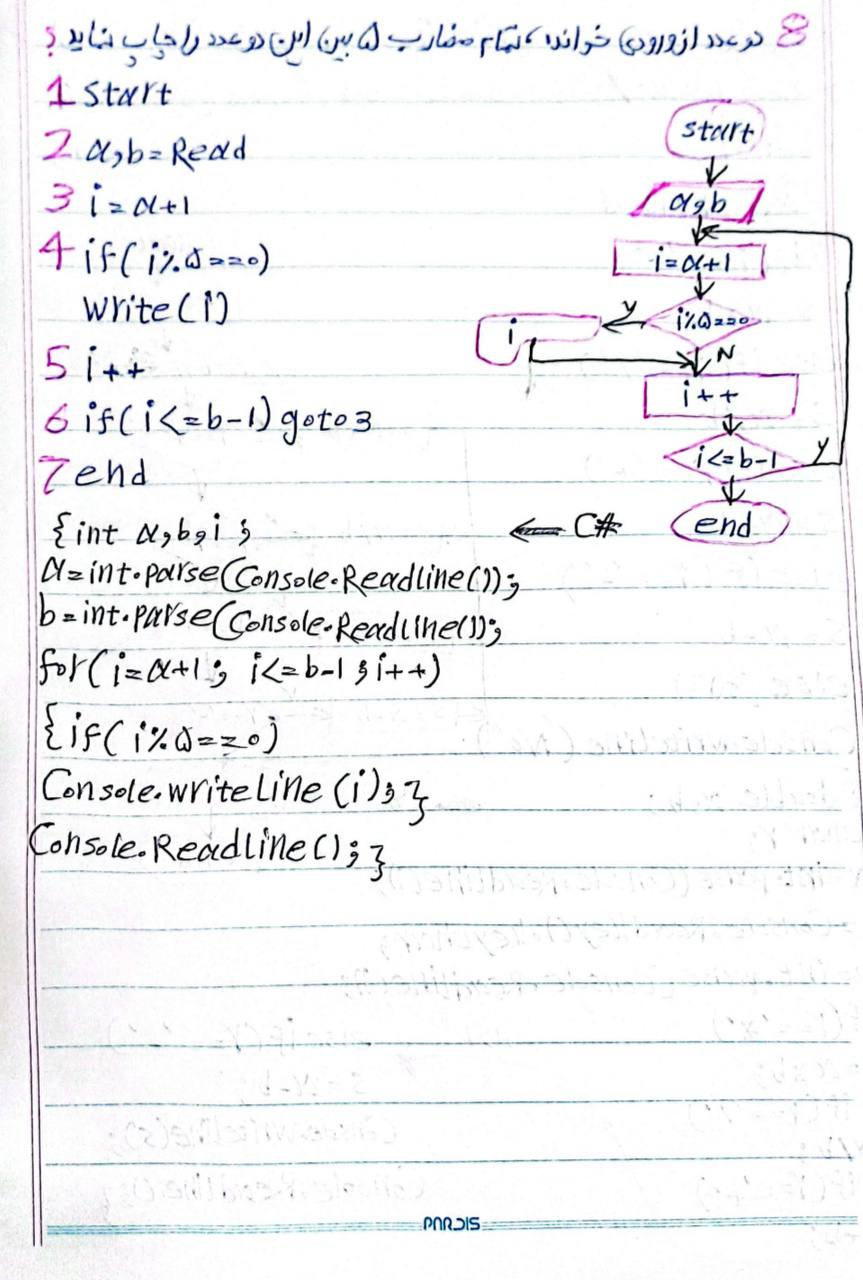 8 دو عدد از ورودی خوانده، تمام مضارب ۵ بین این دو عدد را چاپ نماید؟
1 Start
2 a,b=Read
3 i=a+1
4 if(i%۵==0)
write(i)
5 i++
6 if(i<=b-1) goto 3
7 end
start
a,b
i=a+1
i%۵==0
y
i
N
i++
i<=b-1
y
end
← C#
{int a,b,i;
a=int.parse(Console.Readline());
b=int.parse(Console.Readline());
for(i=a+1; i<=b-1;i++)
{if(i%۵==0)
Console.writeLine(i);}
Console.Readline();}
PARDIS